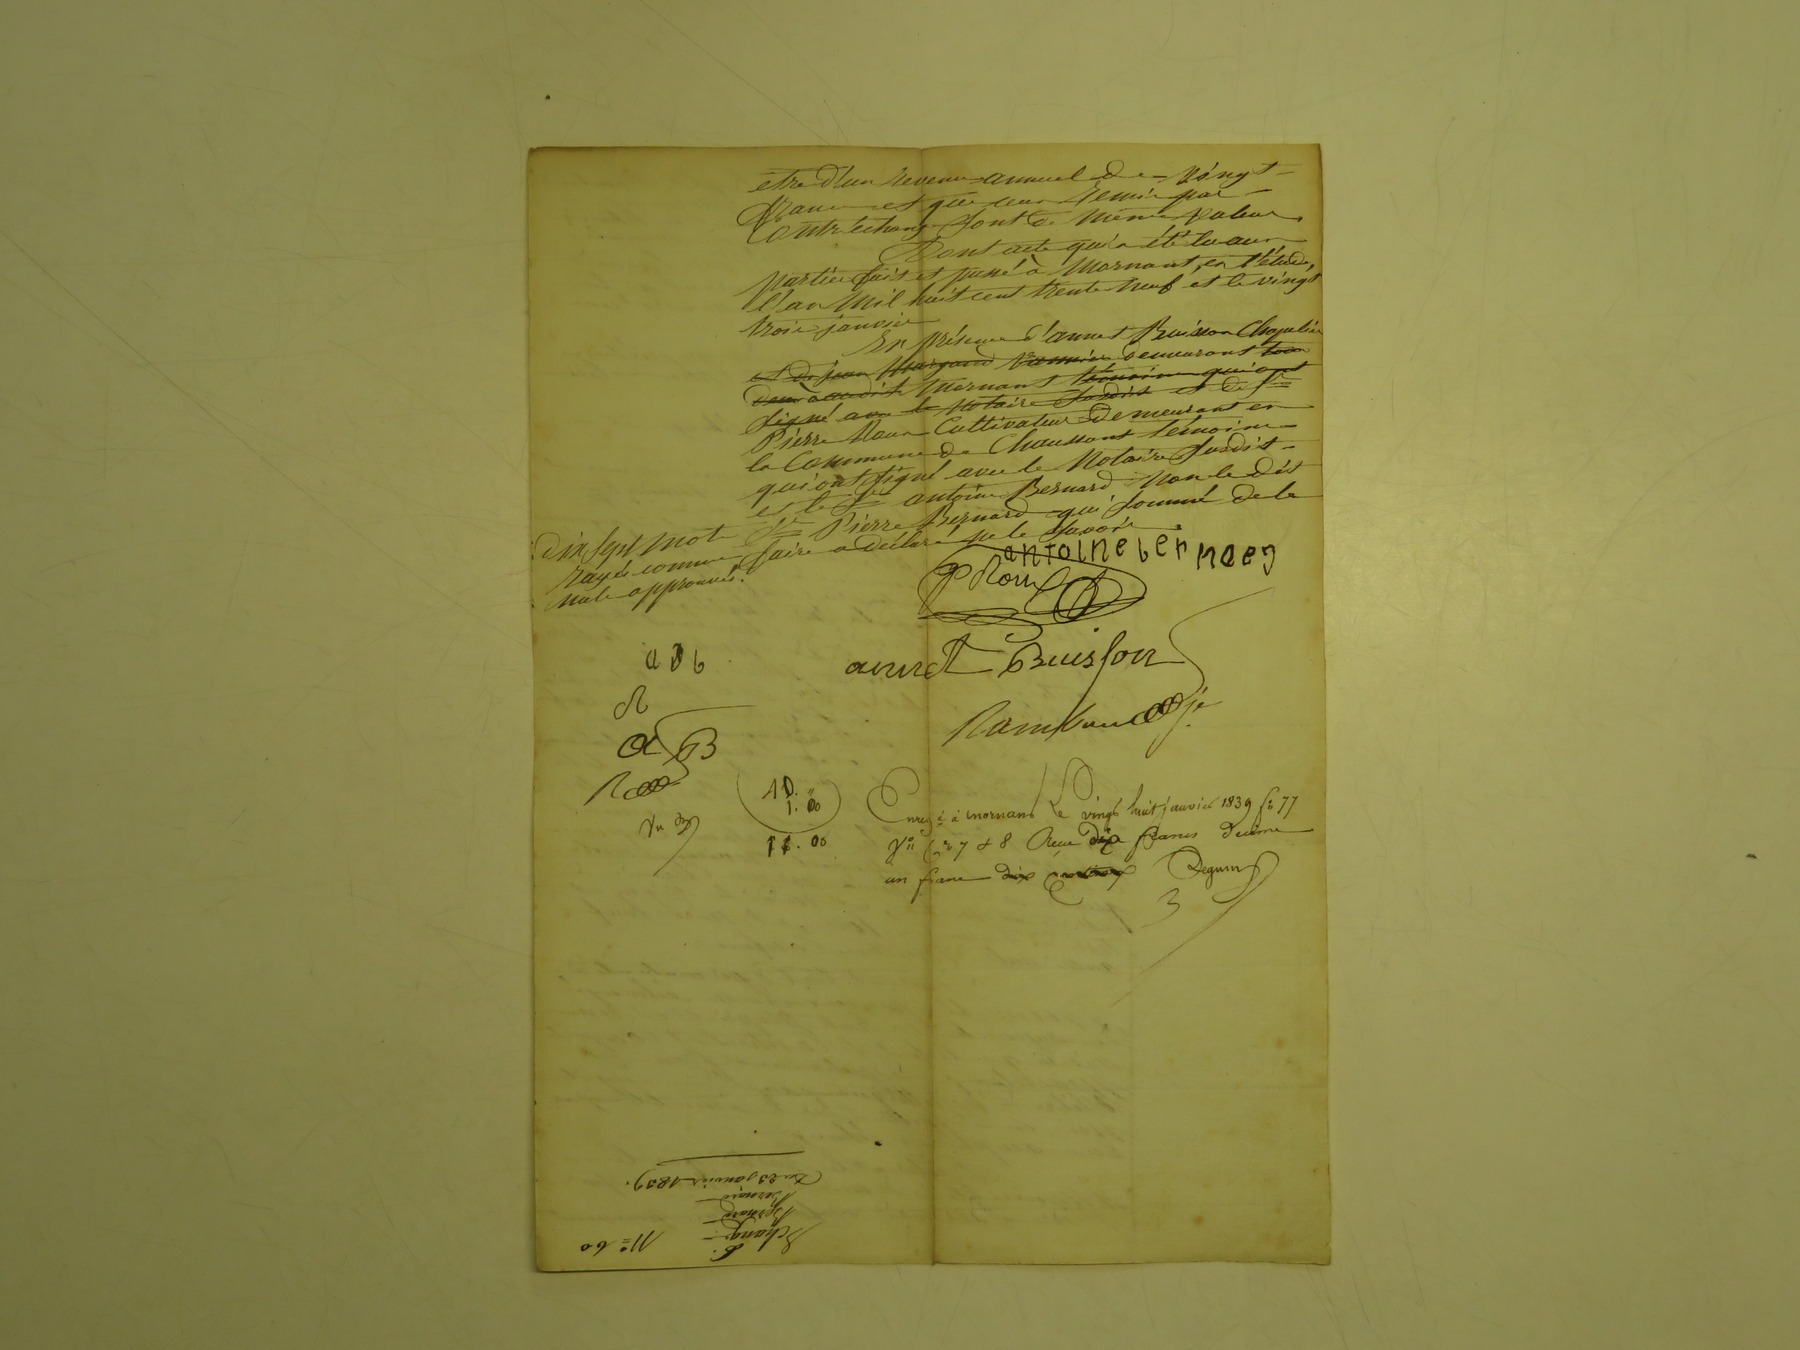 être d'un revenu annuel de vingt
francs et que ceux remis par
contréchange sont de même valeur.
Dont acte qui a été lu aux
parties fait et passé à Mornant, en l'étude,
l'an mil huit cent trente neuf et le vingt
trois janvier
En présence d'annet Buisson Chapelier
et de jean Margand demeurant tous
deux audit Mornant témoins qui ont
signé avec le Notaire susdit et de Sr
Pierre Roux Cultivateur demeurant en
la Commune de Chaussant témoins
qui ont signé avec le Notaire susdit
et le Sr antoine Bernard non le dit
Sr Pierre Bernard qui sommé de le
faire a déclaré ne le savoir
dix sept mots
rayés comme
nuls approuvés.
antoine bernard
P Roux
annet Buisson
a b
R
a B
10. "
1. 00
11. 00
Enregé à mornant le vingt huit janvier 1839 fo 77
Vo Ces 7 & 8 Recu dix francs décime
un franc
N° 60
Echange
Bernard
Bernard
Du 23 janvier 1839.